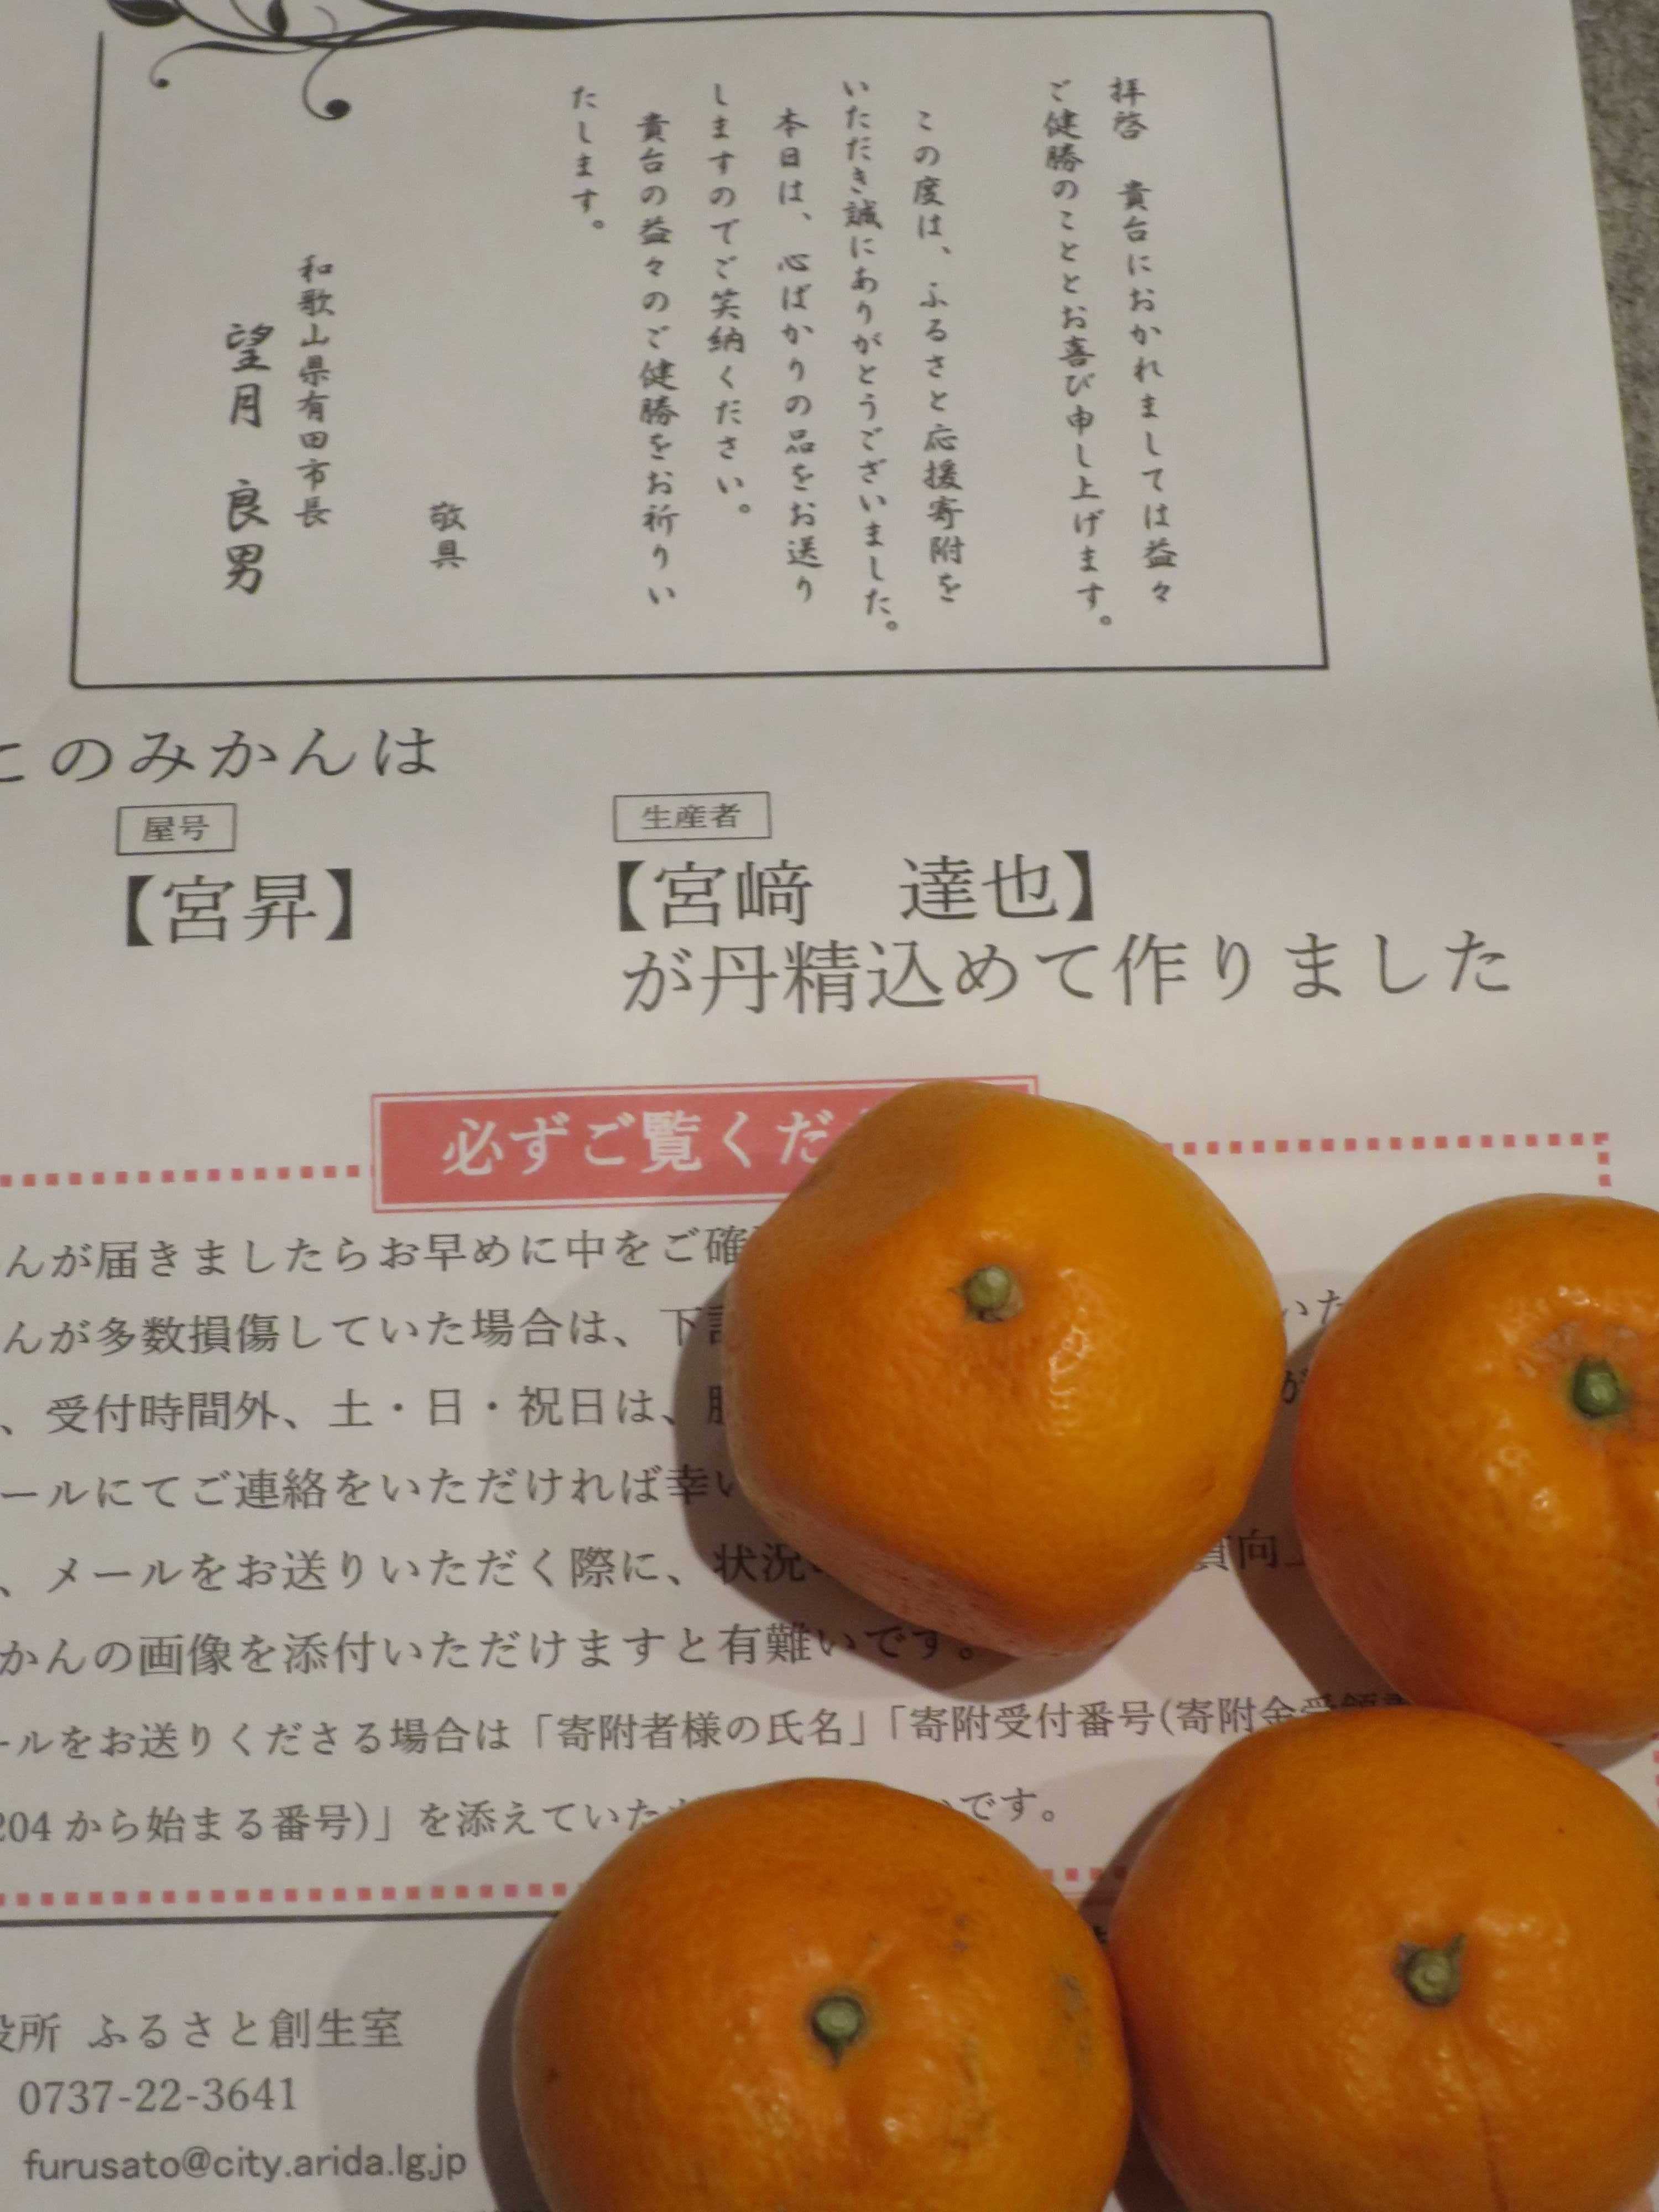 拝啓　貴台におかれましては益々
ご健勝のこととお喜び申し上げます。
この度は、ふるさと応援寄附を
いただき誠にありがとうございました。
本日は、心ばかりの品をお送り
しますのでご笑納ください。
貴台の益々のご健勝をお祈りい
たします。
敬具
和歌山県有田市長
望月　良男
このみかんは
屋号
生産者
【宮昇】
【宮﨑　達也】
が丹精込めて作りました
必ずご覧くだ
んが届きましたらお早めに中をご確
んが多数損傷していた場合は、下記 いた
、受付時間外、土・日・祝日は、 が
ールにてご連絡をいただければ幸い
、メールをお送りいただく際に、状況 質向上
かんの画像を添付いただけますと有難いです。
ールをお送りくださる場合は「寄附者様の氏名」「寄附受付番号(寄附金受領
204から始まる番号)」を添えていた です。
役所 ふるさと創生室
0737-22-3641
furusato@city.arida.lg.jp